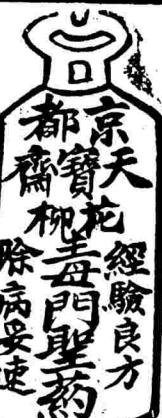 京都
天寶齋
花柳毒門聖药
經驗良方
除病妥速